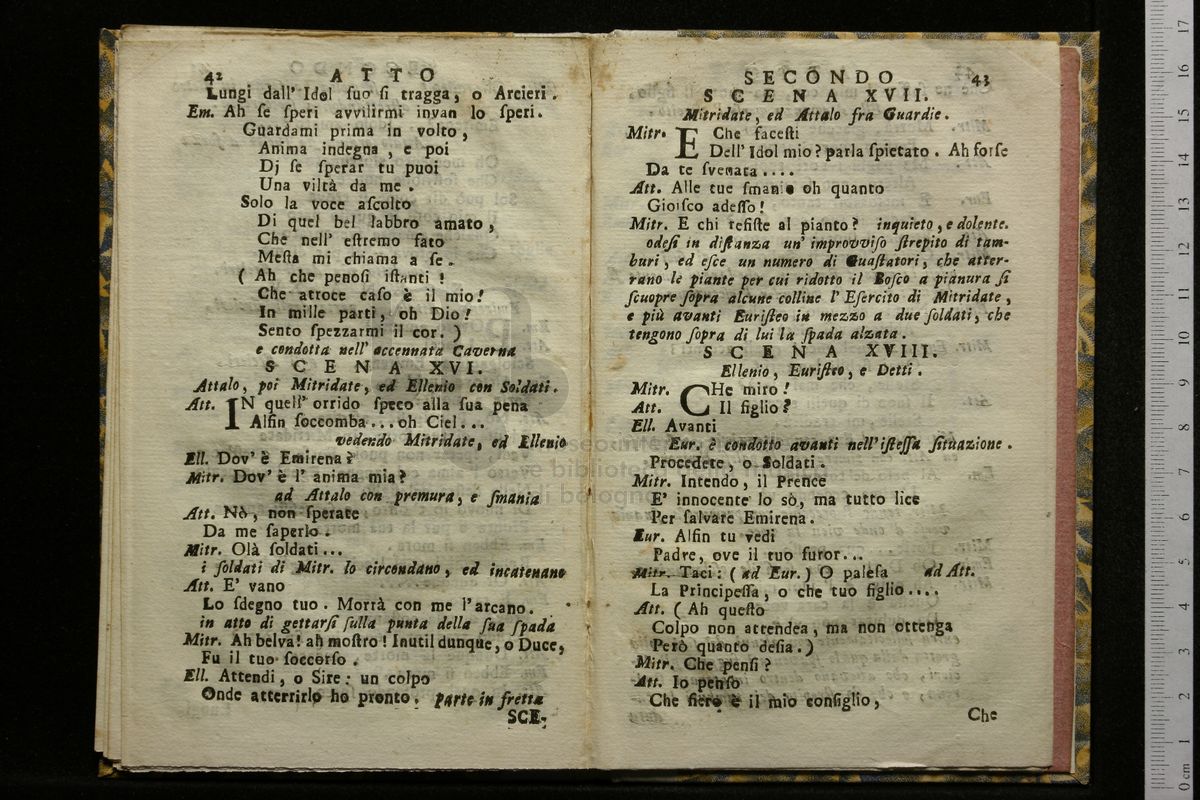 42 ATTO
Lungi dall' Idol suo si tragga, o Arcieri.
Em. Ah se speri avvilirmi invan lo speri.
Guardami prima in volto,
Anima indegna, e poi
Dj se sperar tu puoi
Una viltà da me.
Solo la voce ascolto
Di quel bel labbro amato,
Che nell' estremo fato
Mesta mi chiama a se.
( Ah che penosi istanti !
Che atroce caso è il mio!
In mille parti, oh Dio!
Sento spezzarmi il cor. )
e condotta nell' accennata Caverna
SCENA XVI.
Attalo, poi Mitridate, ed Ellenio con Soldati.
Att. IN quell' orrido speco alla sua pena
Alfin soccomba... oh Ciel...
vedendo Mitridate, ed Ellenio
Ell. Dov' è Emirena?
Mitr. Dov' è l' anima mia?
ad Attalo con premura, e smania
Att. Nò, non sperate
Da me saperlo.
Mitr. Olà soldati...
i soldati di Mitr. lo circondano, ed incatenano
Att. E' vano
Lo sdegno tuo. Morrà con me l'arcano.
in atto di gettarsi sulla punta della sua spada
Mitr. Ah belva! ah mostro! Inutil dunque, o Duce,
Fu il tuo soccorso.
Ell. Attendi, o Sire: un colpo
Onde atterrirlo ho pronto. parte in fretta
SCE-
SECONDO 43
SCENA XVII.
Mitridate, ed Attalo fra Guardie.
Mitr. E Che facesti
Dell' Idol mio? parla spietato. Ah forse
Da te svenata....
Att. Alle tue smanie oh quanto
Gioisco adesso!
Mitr. E chi resiste al pianto? inquieto, e dolente.
odesi in distanza un' improvviso strepito di tam-
buri, ed esce un numero di Guastatori, che atter-
rano le piante per cui ridotto il Bosco a pianura si
scuopre sopra alcune colline l' Esercito di Mitridate,
e più avanti Euristeo in mezzo a due soldati, che
tengono sopra di lui la spada alzata.
SCENA XVIII.
Ellenio, Euristeo, e Detti.
Mitr. CHe miro!
Att. Il figlio?
Ell. Avanti
Eur. è condotto avanti nell' istessa situazione.
Procedete, o Soldati.
Mitr. Intendo, il Prence
E' innocente lo sò, ma tutto lice
Per salvare Emirena.
Eur. Alfin tu vedi
Padre, ove il tuo furor...
Mitr. Taci: ( ad Eur. ) O palesa ad Att.
La Principessa, o che tuo figlio....
Att. ( Ah questo
Colpo non attendea, ma non ottenga
Però quanto desia. )
Mitr. Che pensi?
Att. Io penso
Che fiero è il mio consiglio,
Che